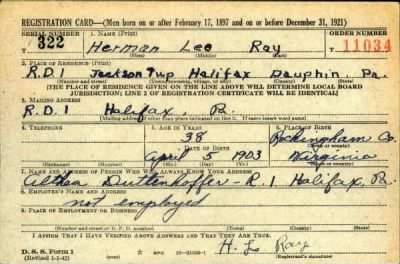 REGISTRATION CARD—(Men born on or after February 17, 1897 and on or before December 31, 1921)
SERIAL NUMBER 1. NAME (Print) ORDER NUMBER
T 322 Herman Lee Ray T 11034
(First) (Middle) (Last)
2. PLACE OF RESIDENCE (Print)
R.D.1 Jackson Twp Halifax Dauphin, Pa.
(Number and street) (Town, township, village, or city) (County) (State)
[THE PLACE OF RESIDENCE GIVEN ON THE LINE ABOVE WILL DETERMINE LOCAL BOARD
JURISDICTION; LINE 2 OF REGISTRATION CERTIFICATE WILL BE IDENTICAL]
3. MAILING ADDRESS
R.D.1 Halifax, Pa.
[Mailing address if other than place indicated on line 2. If same insert word same]
4. TELEPHONE 5. AGE IN YEARS 6. PLACE OF BIRTH
38 Rockingham Co.
DATE OF BIRTH (Town or county)
April 5 1903 Virginia
(Exchange) (Number) (Mo.) (Day) (Yr.) (State or country)
7. NAME AND ADDRESS OF PERSON WHO WILL ALWAYS KNOW YOUR ADDRESS
Duttenhoffer - R.1 Halifax, Pa.
8. EMPLOYER'S NAME AND ADDRESS
not employed
9. PLACE OF EMPLOYMENT OR BUSINESS
(Number and street or R. F. D. number) (Town) (County) (State)
I AFFIRM THAT I HAVE VERIFIED ABOVE ANSWERS AND THAT THEY ARE TRUE.
D. S. S. Form 1 H. L. Ray
(Revised 1-1-42) (over) (Registrant's signature)